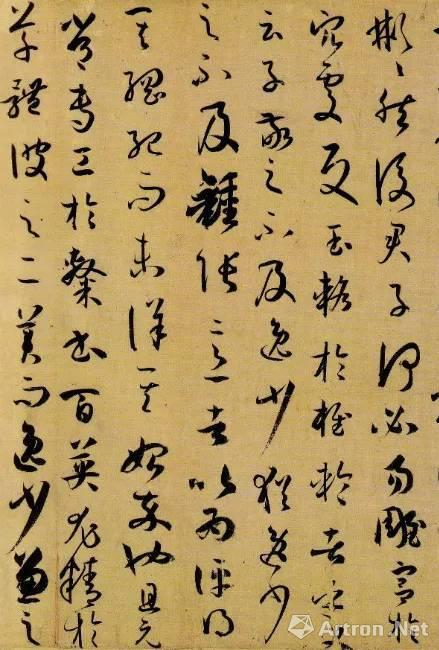 彬彬然後君子何必易雕宮於
穴處反玉輅於椎輪者乎又
云子敬之不及逸少猶逸少
之不及鍾張意者以為評得
其綱紀而未詳其始卒也且元
常專工於隸書百英尤精於
草體彼之二美而逸少兼之
Artron.Net